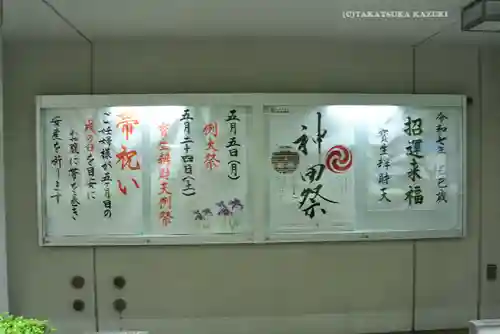 (C)TAKATSUKA KAZUKI
令和七年 乙巳歳
招運来福
寶生辨財天
神田祭
五月五日(月)
例大祭
五月二十四日(土)
寶生辨財天例祭
帯祝い
ご妊婦様が五ヶ月目の
戌の日を目安に
お腹に帯を巻き
安産を祈ります